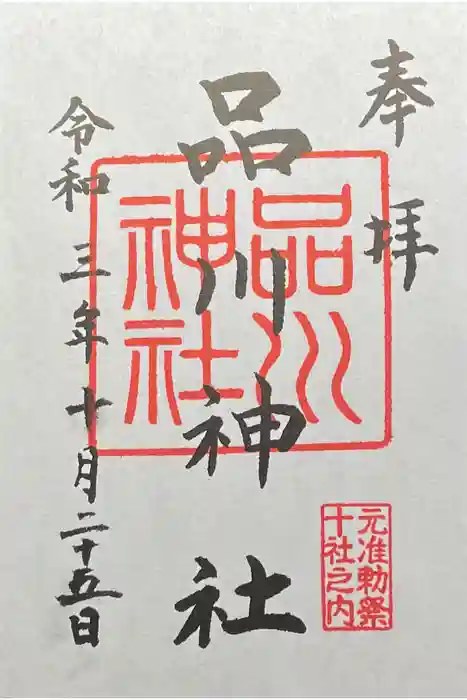 奉拝
品川神社
品川
神社
令和三年十月二十五日
元准勅祭
十社之内